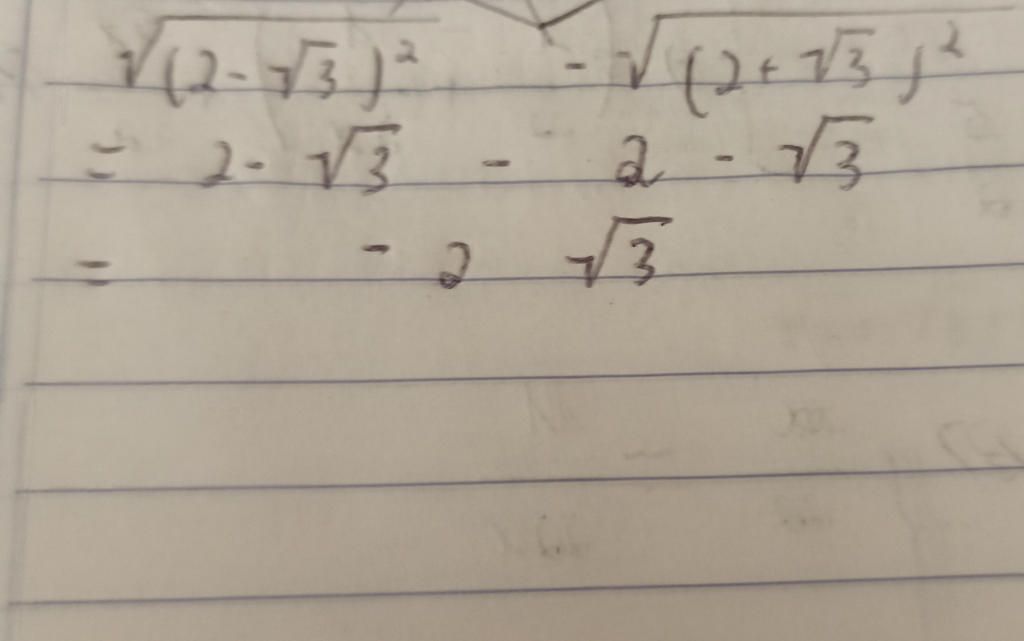 √(2-√3)² - √(2+√3)²
= 2-√3 - 2 - √3
= -2 √3